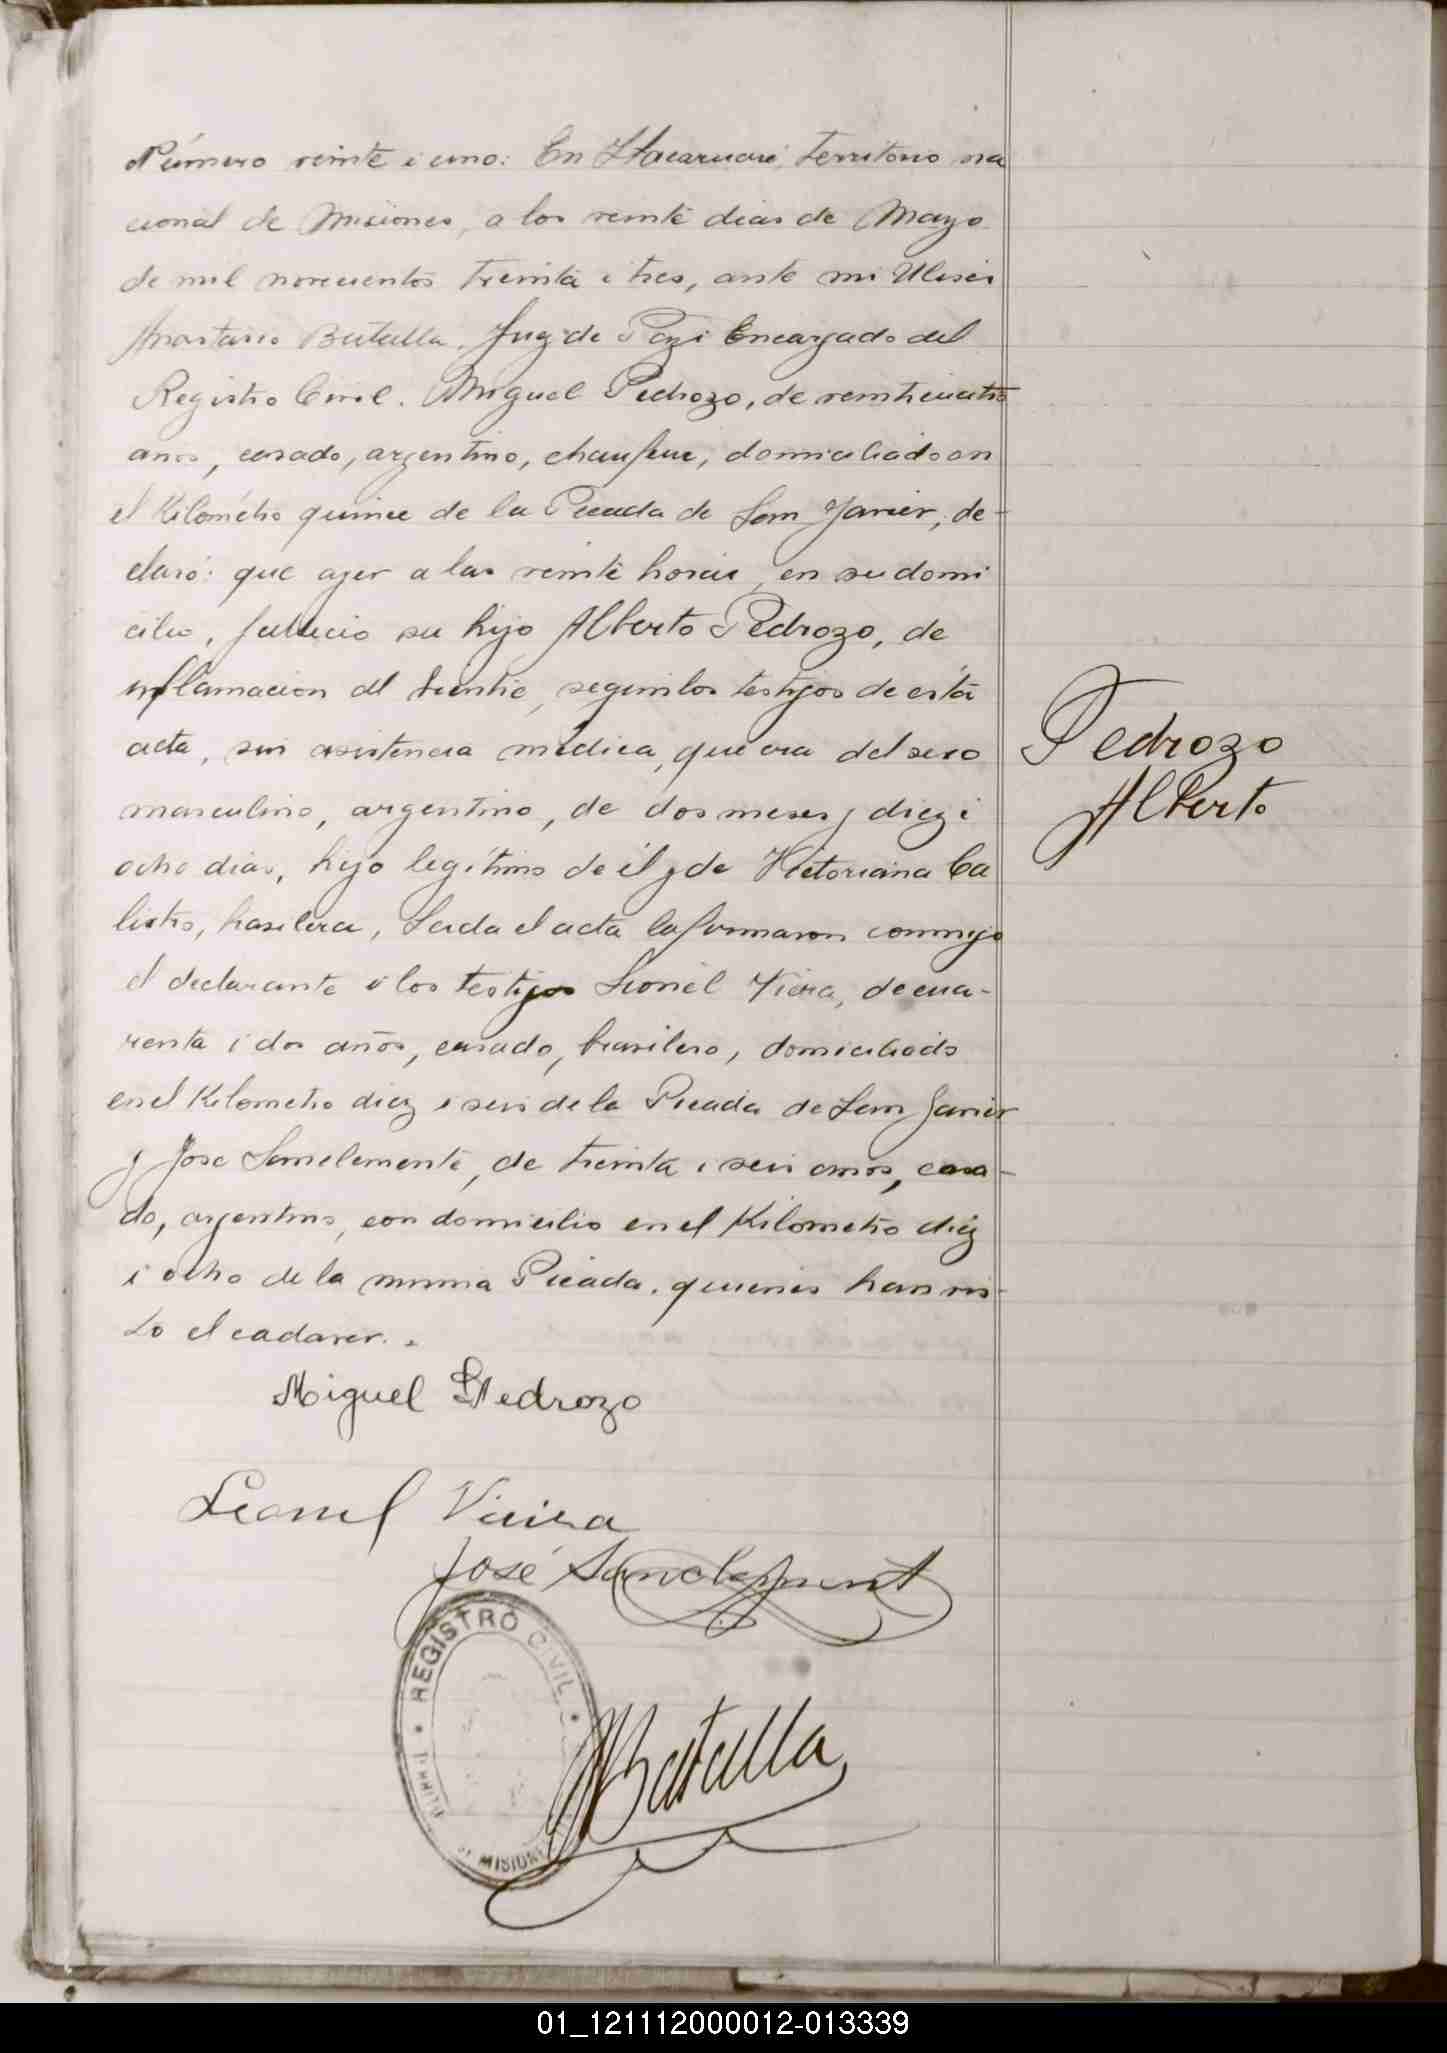 Número veinte i uno: En Itacaruaré, territorio na
cional de Misiones, a los veinte dias de Mayo
de mil novecientos treinta i tres, ante mi Ulises
Anastacio Batalla, Juez de Paz i Encargado del
Registro Civil. Miguel Pedrozo, de veinticuatro
años, casado, argentino, chaufeur, domiciliado en
el Kilométro quince de la Picada de San Javier, de-
claró: que ayer a las veinte horas, en su domi
cilio, fallecio su hijo Alberto Pedrozo, de
inflamacion al vientre, segun los testigos de esta
acta, sin asistencia médica, que era del sexo
masculino, argentino, de dos meses y diez i
ocho dias, hijo legítimo de él y de Victoriana Ca
listro, brasilera, Leida el acta la firmaron conmigo
el declarante i los testigos Leonel Viera, de cua-
renta i dos años, casado, brasilero, domiciliado
en el Kilometro diez i seis de la Picada de San Javier
y José Sanclemente, de treinta i seis años, casa-
do, argentino, con domicilio en el Kilometro diez
i ocho de la misma Picada, quienes han vis-
to el cadaver.
Pedrozo
Alberto
Miguel Pedrozo
Leonel Vieira
José Sanclement
REGISTRO CIVIL
MISIONES
Batalla
01_121112000012-013339